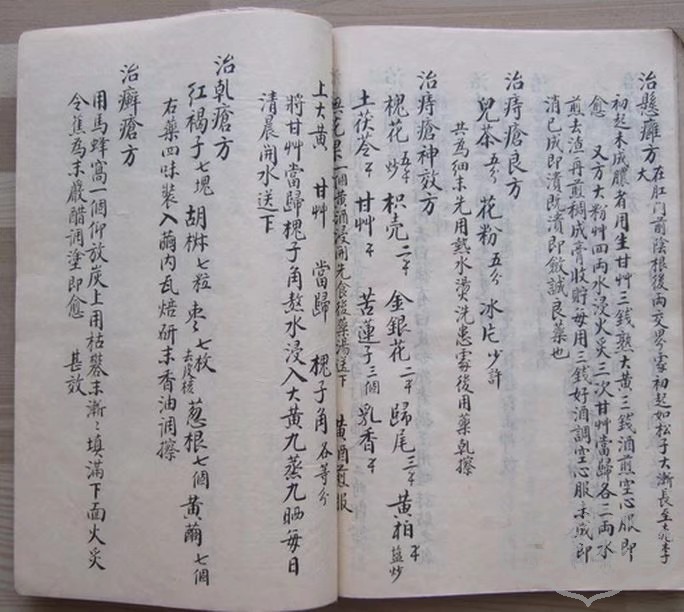 治懸癰方 在肛门前陰根後两交界處初起如松子大漸長至桃李
大
初起未成膿者用生甘艸三錢熟大黄三錢酒煎空心服即
愈 又方大粉艸四兩水浸火炙三次甘艸當歸各三兩水
煎去渣再煎稠成膏收貯每用三錢好酒調空心服未成即
消已成即潰既潰即斂誠良藥也
治痔瘡良方
兒茶五分 花粉五分 冰片少許
共為細末先用熱水燙洗患處後用藥乾擦
治痔瘡神效方
槐花五钱炒 枳壳二钱 金銀花二钱 歸尾三钱 黄柏钱盐炒
土茯苓钱 甘艸钱 苦蓮子三個 乳香钱
無花果一個黄酒浸開先食後藥湯送下 黄酒煎服
上大黄 甘艸 當歸 槐子角各等分
將甘艸當歸槐子角熬水浸入大黄九蒸九晒每日
清晨開水送下
治乾瘡方
紅褐子七塊 胡椒七粒 枣七枚去皮核 葱根七個 黄繭七個
右藥四味裝入繭内瓦焙研末香油調擦
治癬瘡方
用馬蜂窩一個仰放炭上用枯礬末漸々填滿下面火炙
令焦為末嚴醋調塗即愈 甚效